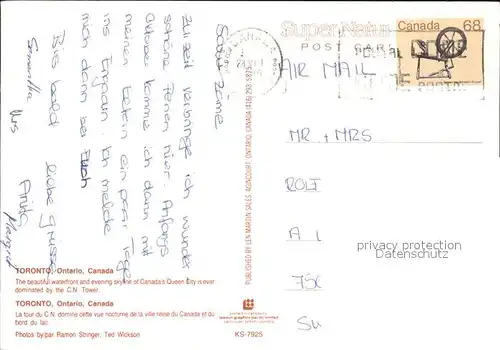 Super, Natu
Canada 68
POST CARD
AIR MAIL
MR. + MRS
ROLF
A
750
Salü zäme
Zur Zeit verbringe ich wunder
schöne Ferien hier. Anfangs
Oktober komme ich dann mit
meinen Eltern ein paar Tage
ins Engadin. Ich melde
mich dann bei Euch
Bis bald liebe Grüsse
Samantha
Urs
Margrit
PUBLISHED BY LEN MARTIN SALES, AGINCOURT, ONTARIO, CANADA (416) 293
TORONTO, Ontario, Canada
The beautiful waterfront and evening skyline of Canada's Queen City is ever
dominated by the C.N. Tower.
TORONTO, Ontario, Canada
La tour du C.N. domine cette vue nocturne de la ville reine du Canada et du
bord du lac.
Photos by/par Ramon Stringer, Ted Wickson
KS-7925
persönliche Daten
Datenschutz